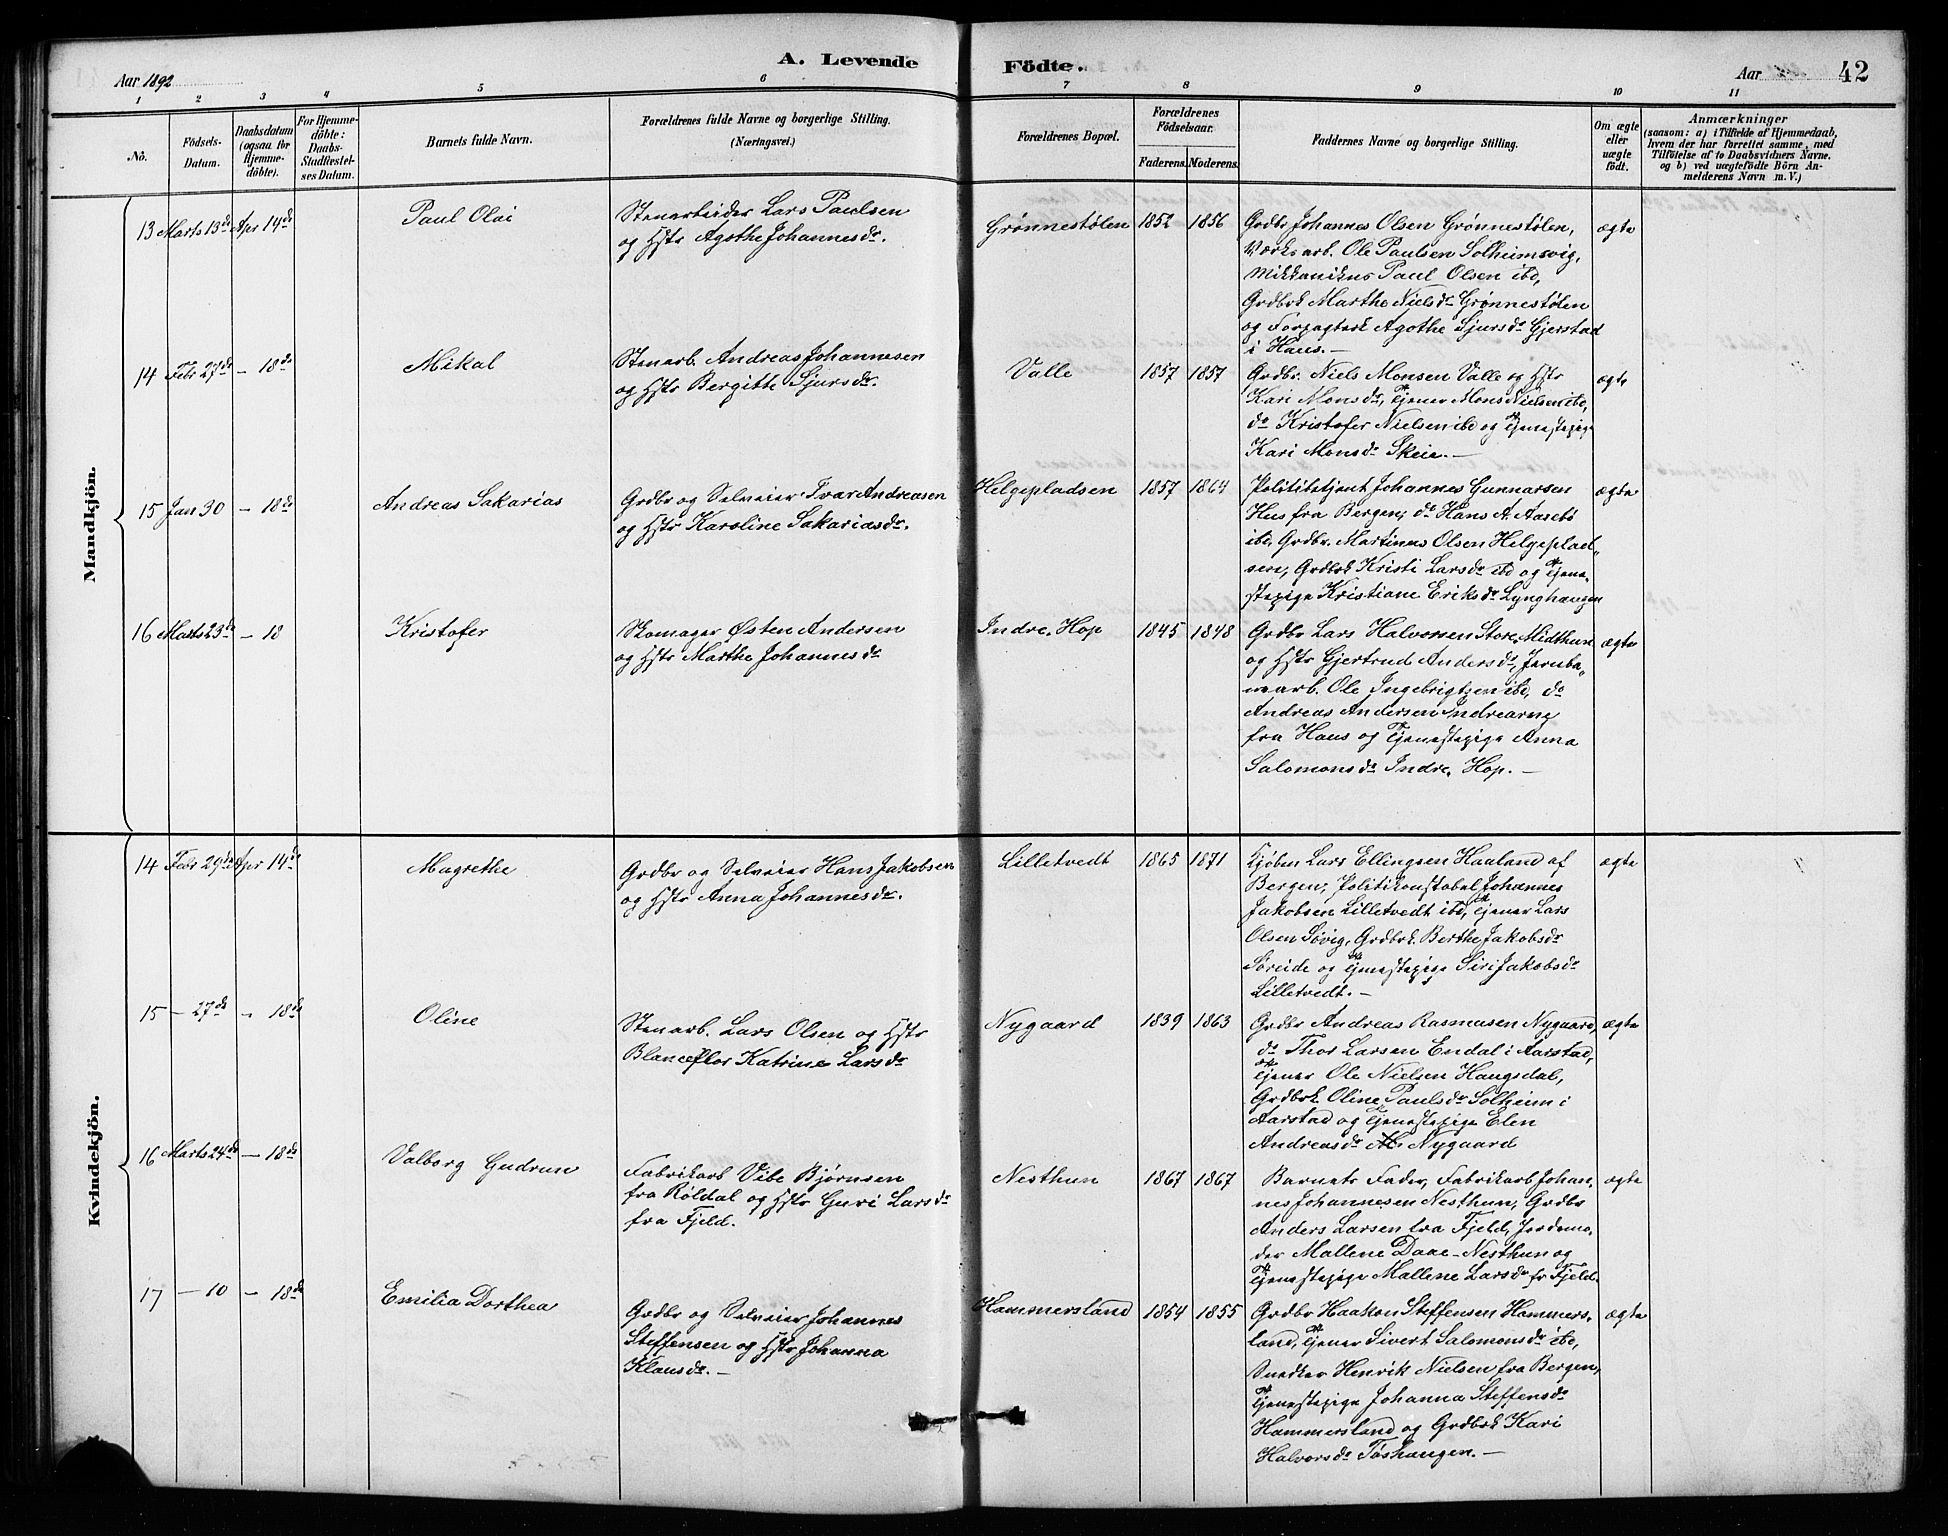 Aar 1892
A. Levende
Födte.
Aar
42
1 2 3 4 5 6 7 8 9 10 11
No.
Födsels-
Datum.
Daabsdatum
(ogsaa for
Hjemme-
döbte).
For Hjemme-
döbte:
Daabs-
Stadfæstel-
ses Datum.
Barnets fulde Navn.
Forældrenes fulde Navne og borgerlige Stilling.
(Næringsvei.)
Forældrenes Bopæl.
Forældrenes
Födselsaar.
Faderens.
Moderens.
Faddernes Navne og borgerlige Stilling.
Om ægte
eller
uægte
født.
Anmærkninger
(saasom: a) i Tilfælde af Hjemmedaab,
hvem der har forrettet samme, med
Tilföielse af to Daabsvidners Navne.
og b) ved uægtefödte Börn An-
melderens Navn m. V.)
Mandkjön.
13 Marts 13de Apr 14de
Paul Olai
Stenarbeider Lars Paulsen
og Hstr Agathe Johannesdr.
Grønnestølen 1852 1856
Grdbr Johannes Olsen Grønnestølen,
Værksarb. Ole Paulsen Solheimsvig,
Mekkanikus Paul Olsen ibd,
Grdbrk Marthe Nielsdr Grønnestølen
og Forpagterk Agathe Sjursdr Gjerstad
i Haus. —
ægte
14 Febr 27de — 18de
Mikal
Stenarb. Andreas Johannesen
og Hstr Bergitte Sjursdr.
Valle 1857 1857
Grdbr. Niels Monsen Valle og Hstr
Kari Monsdr, Tjener Mons Nielsen ibd,
do Kristofer Nielsen ibd og Tjenestepige
Kari Monsdr Skeie. —
ægte
15 Jan 30 — 18de
Andreas Sakarias
Grdbr og Selveier Ivar Andreasen
og Hstr Karoline Sakariasdr.
Helgepladsen 1857 1864
Politibetjent Johannes Gunnarsen
Hus fra Bergen, do Hans A. Aasebø
ibd, Grdbr. Martinus Olsen Helgeplad-
sen, Grdbrk Kristi Larsdr ibd og Tjene-
stepige Kristiane Eriksdr Lynghaugen
ægte
16 Marts 23de — 18
Kristofer
Skomager Østen Andersen
og Hstr Marthe Johannesdr
Indre Hop 1845 1848
Grdbr Lars Halvorsen Store Midthun
og Hstr Gjertrud Andersdr, Jernba-
nearb. Ole Ingebrigtsen ibd, do
Andreas Andersen Indrearne
fra Haus og Tjenestepige Anna
Salomonsdr Indre Hop. —
ægte
Kvindekjön.
14 Febr 29de Apr 14de
Magrethe
Grdbr og Selveier Hans Jakobsen
og Hstr Anna Johannesdr.
Lilletvedt 1865 1871
Kjøbm Lars Ellingsen Haaland af
Bergen, Politikonstabel Johannes
Jakobsen Lilletvedt ibd, Tjener Lars
Olsen Søvig, Grdbrk. Berthe Jakobsdr
Søreide og Tjenestepige Siri Jakobsdr
Lilletvedt. —
ægte
15 — 27de — 18de
Oline
Stenarb. Lars Olsen og Hstr
Blanceflor Katrine Larsdr
Nygaard 1839 1863
Grdbr Andreas Rasmusen Nygaard,
do Thor Larsen Endal i Aarstad,
Tjener Ole Nielsen Haugsdal,
Grdbrk Oline Paulsdr Solheim i
Aarstad og Tjenestepige Elen
Andreasdr Nygaard
ægte
16 Marts 24de — 18de
Valborg Gudrun
Fabrikarb Vibe Bjørnsen
fra Røldal og Hstr Guri Larsdr
fra Fjeld.
Nesthun 1867 1867
Barnets Fader, Fabrikarb Johan-
nes Johannesen Nesthun, Grdbr
Anders Larsen fra Fjeld, Jordemo-
der Mallene Daae-Nesthun og
Tjenestepige Mallene Larsdr fr Fjeld.
ægte
17 — 10 — 18de
Emilia Dorthea
Grdbr og Selveier Johannes
Steffensen og Hstr Johanna
Klausdr. —
Hammersland 1854 1855
Grdbr Haakon Steffensen Hammers-
land, Tjener Sivert Salomonsdr ibd,
Snedker Henrik Nielsen fra Bergen,
Tjenestepige Johanna Steffensdr
Hammersland og Grdbrk Kari
Halvorsdr Tøshaugen. —
ægte